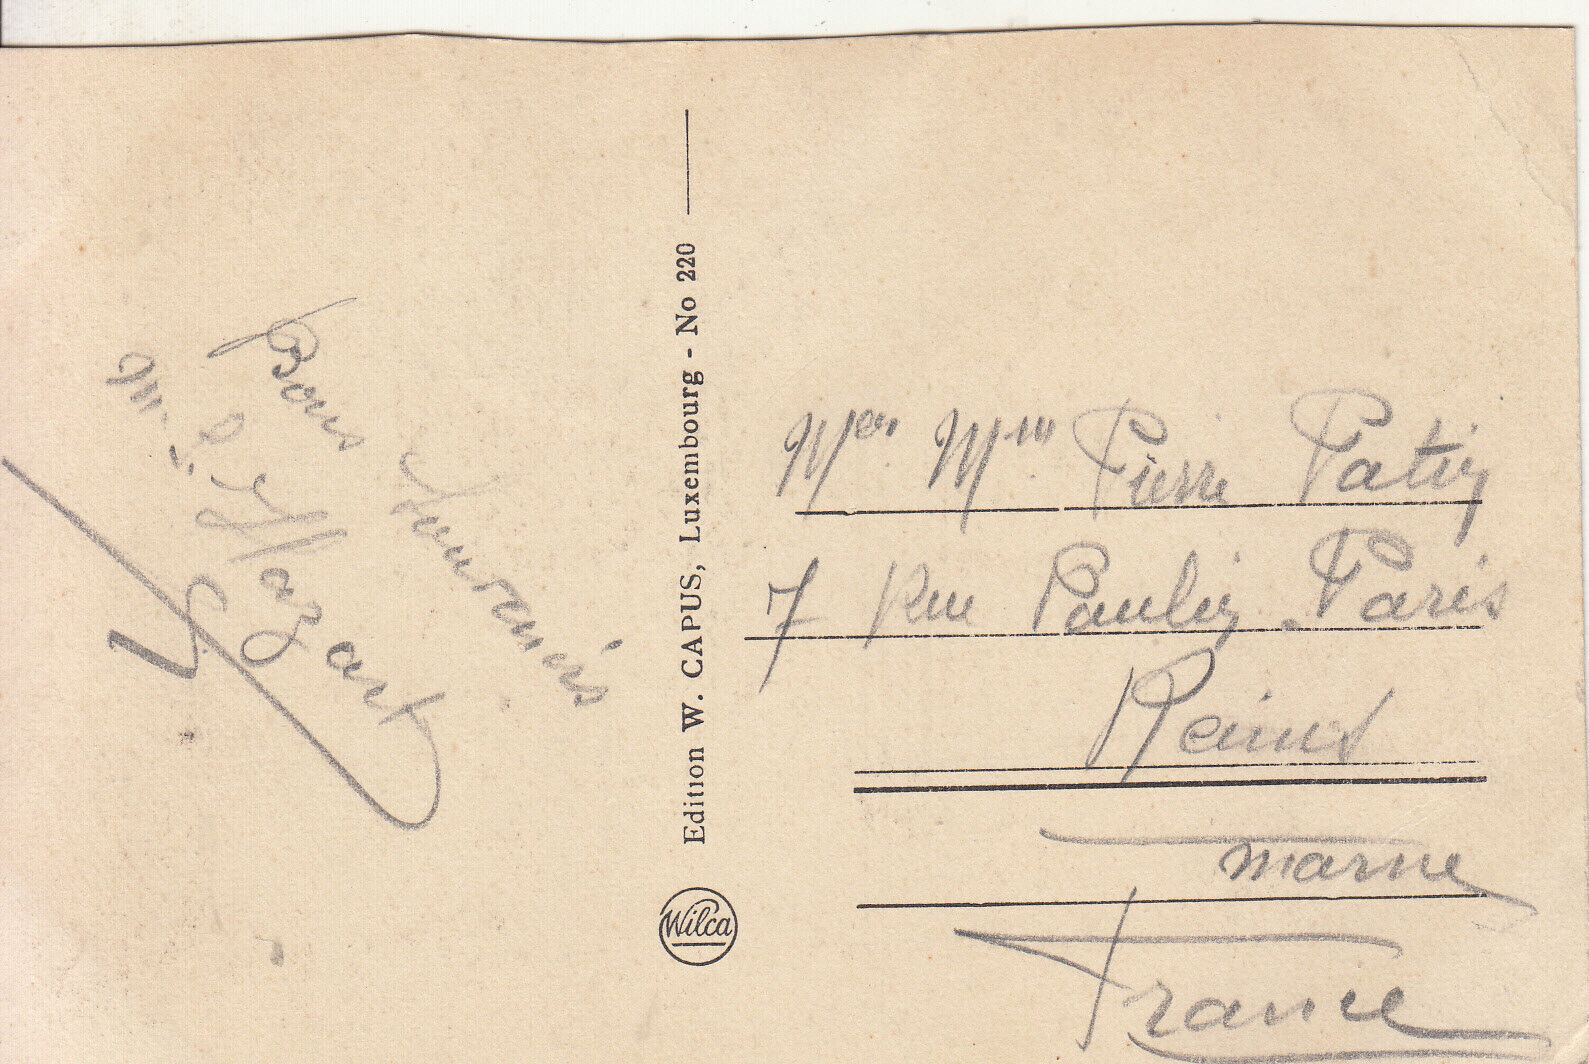 Bons Souvenirs
M. S. Hazart
Edition W. CAPUS, Luxembourg - No 220
Wilca
Mer Mme Pierre Patin
7 Rue Paulin Paris
Reims
Marne
France